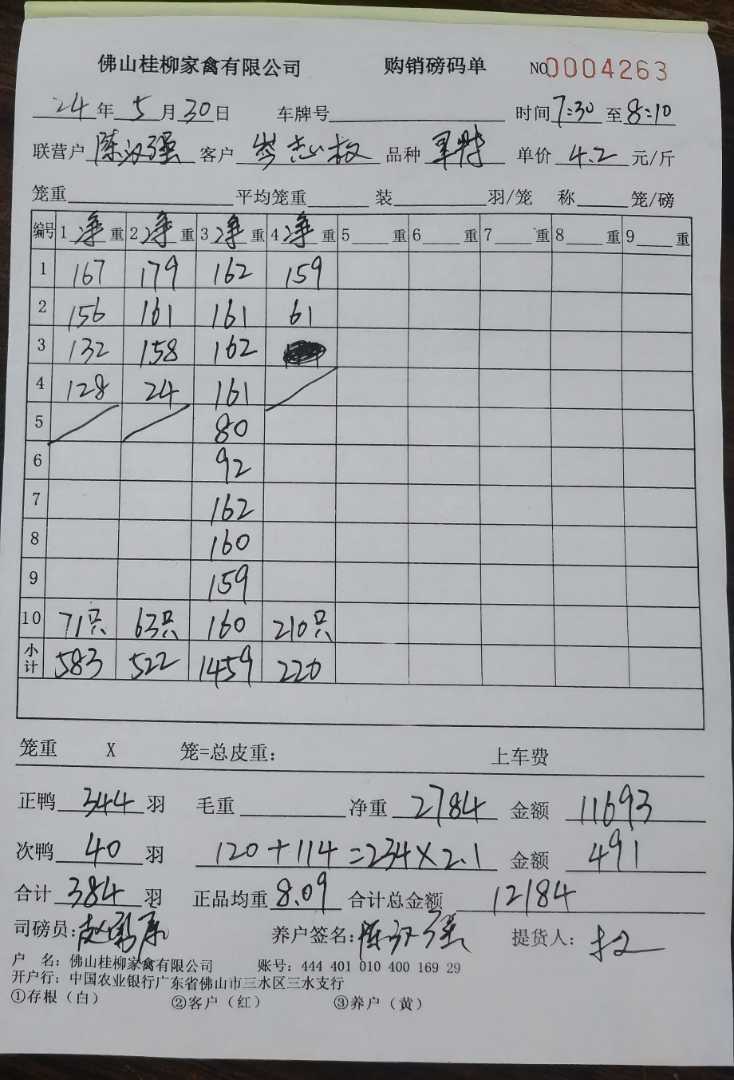 佛山桂柳家禽有限公司 购销磅码单 NO0004263
24年5月30日 车牌号 时间7:30至8:10
联营户陈汉强 客户岑志权 品种 单价4.2元/斤
笼重 平均笼重 装 羽/笼 称 笼/磅
编号 1净重 2净重 3净重 4净重 5重 6重 7重 8重 9重
1 167 179 162 159
2 156 161 161 61
3 132 158 162
4 128 24 161
5 80
6 92
7 162
8 160
9 159
10 71只 63只 160 210只
小计 583 522 1459 220
笼重 X 笼=总皮重: 上车费
正鸭344羽 毛重 净重2784 金额11693
次鸭40羽 120+114=234×2.1 金额491
合计384羽 正品均重8.09 合计总金额12184
司磅员: 养户签名:陈汉强 提货人:
户 名:佛山桂柳家禽有限公司 账号:444 401 010 400 169 29
开户行:中国农业银行广东省佛山市三水区三水支行
①存根(白) ②客户(红) ③养户(黄)